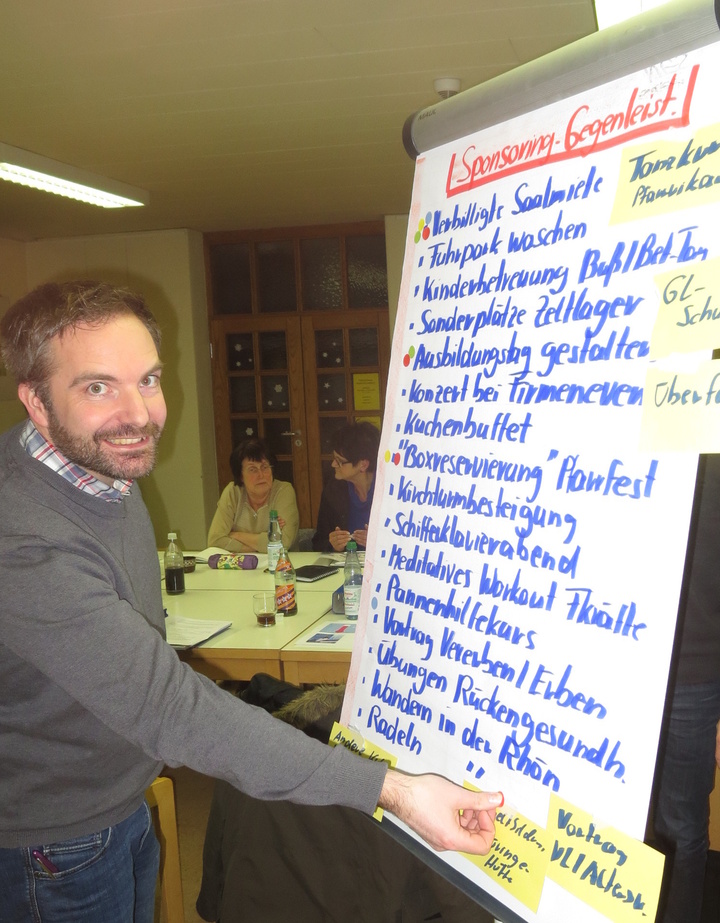 Sponsoring-Gegenleist.
Verbilligte Saalmiete
Fuhrpark waschen
Kinderbetreuung Buß/Bet-Tag
Sonderplätze Zeltlager
Ausbildungstag gestalten
Konzert bei Firmeneven
Kuchenbuffet
"Boxreservierung" Pfarrfest
Kirchturmbesteigung
Schifferklavierabend
Meditatives Workout Fkräfte
Pannenhilfekurs
Vortrag Vererben/Erben
Übungen Rückengesundh.
Wandern in der Rhön
Radeln "
GL-
Schu
Überf
Hütte
Vortrag